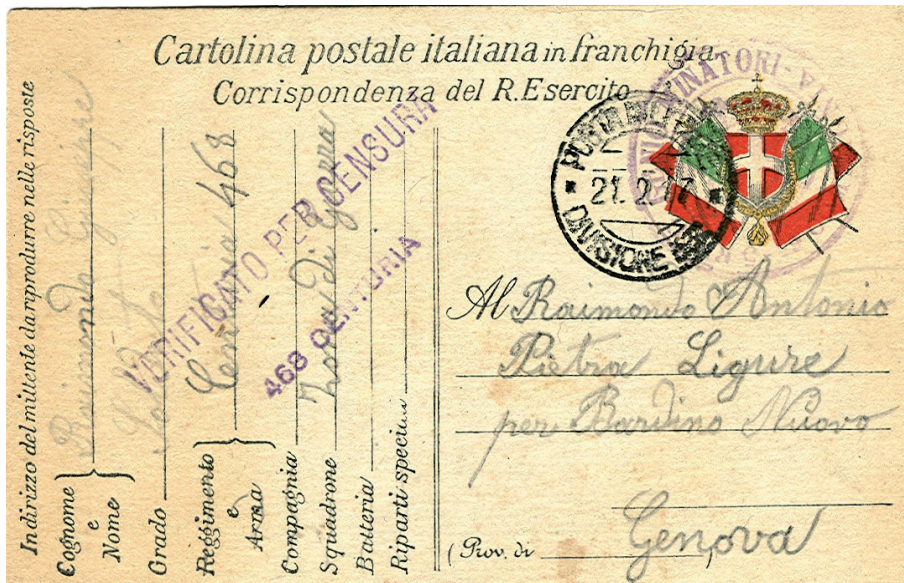 Cartolina postale italiana in franchigia
Corrispondenza del R. Esercito
Indirizzo del mittente da riprodurre nelle risposte
Cognome e Nome Raimondo Giuseppe
Grado Soldato
Reggimento e Arma Centuria 468
Compagnia
Squadrone Zona di Guerra
Batteria
Riparti speciali
VERIFICATO PER CENSURA
468 CENTURIA
POSTA MILITARE
21.2.17
DIVISIONE
Al Raimondo Antonio
Pietra Ligure
per Bardino Nuovo
(Prov. di Genova